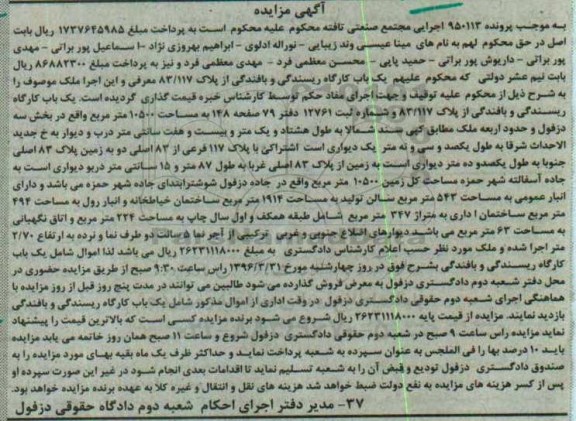 آگهی مزایده
به موجب پرونده ۹۵۰۱۱۳ اجرایی مجتمع صنعتی تافته محکوم علیه محکوم است به پرداخت مبلغ ۱۷۳۷۶۴۵۹۸۵ ریال بابت
اصل در حق محکوم لهم به نام های مینا عیسی وند زیبایی - نوراله ادلوی - ابراهیم بهروزی نژاد - اسماعیل پور براتی - مهدی
پور براتی - داریوش پور براتی - حمید پاپی - محسن معظمی فرد - مهدی معظمی فرد و نیز به پرداخت مبلغ ۸۶۸۸۲۳۰۰ ریال
بابت نیم عشر دولتی که محکوم علیهم یک باب کارگاه ریسندگی و بافندگی از پلاک ۸۳/۱۱۷ معرفی و این اجرا ملک موصوف را
به شرح ذیل از محکوم علیه توقیف و جهت اجرای مفاد حکم توسط کارشناس خبره قیمت گذاری گردیده است. یک باب کارگاه
ریسندگی و بافندگی از پلاک ۸۳/۱۱۷ و شماره ثبت ۱۲۷۶۱ دفتر ۷۹ صفحه ۱۴۸ به مساحت ۱۰۵۰۰ متر مربع واقع در بخش سه
دزفول و حدود اربعه ملک مطابق کپی سند شمالا به طول هشتاد و یک متر و بیست و هفت سانتی متر درب و دیوار به خ جدید
الاحداث شرقا به طول یکصد و سی و نه متر یک دیواری است اشتراکی با پلاک ۱۱۷ فرعی از ۸۳ اصلی دو به زمین پلاک ۸۳ اصلی
جنوبا به طول یکصدو ده متر دیواری است به زمین از پلاک ۸۳ اصلی غربا به طول ۸۷ متر و ۱۵ سانتی متر دریو دیواری است به
جاده آسفالته شهر حمزه مساحت کل زمین ۱۰۵۰۰ متر مربع واقع در جاده دزفول شوشترابتدای جاده شهر حمزه می باشد و دارای
انبار عمومی به مساحت ۵۴۳ متر مربع سالن تولید به مساحت ۱۹۱۴ متر مربع ساختمان خیاطخانه و انبار رول به مساحت ۴۹۴
متر مربع ساختمان اداری به متراژ ۳۴۷ متر مربع شامل طبقه همکف و اول سال چاپ به مساحت ۲۲۴ متر مربع و اتاق نگهبانی
به مساحت ۶۳ متر مربع می باشد دیوارهای اضلاع جنوبی و غربی ترکیبی از آجر نما ۵ سانت دو طرف نما و نرده به ارتفاع ۲/۷۰
متر اجرا شده و ملک مورد نظر حسب اعلام کارشناس دادگستری به مبلغ ۲۶۲۳۱۱۸۰۰۰ ریال می باشد لذا اموال شامل یک باب
کارگاه ریسندگی و بافندگی بشرح فوق در روز چهارشنبه مورخ ۱۳۹۶/۳/۳۱ راس ساعت ۹:۳۰ صبح از طریق مزایده حضوری در
محل دفتر شعبه دوم دادگستری دزفول به معرض فروش گذارده می شود طالبین می توانند در مدت پنج روز قبل از روز مزایده با
هماهنگی اجرای شعبه دوم حقوقی دادگستری دزفول در وقت اداری از اموال مذکور شامل یک باب کارگاه ریسندگی و بافندگی
بازدید نمایند. مزایده از قیمت پایه ۲۶۲۳۱۱۸۰۰۰ ریال شروع می شود برنده مزایده کسی است که بالاترین قیمت را پیشنهاد
نماید مزایده راس ساعت ۹ صبح در شعبه دوم حقوقی دادگستری دزفول شروع و ساعت ۱۱ صبح همان روز خاتمه می یابد مزایده
باید ۱۰ درصد بها را فی المجلس به عنوان سپرده به شعبه پرداخت نماید و حداکثر ظرف یک ماه بقیه بهای مورد مزایده را به
صندوق دادگستری دزفول تودیع و قبض آن را به شعبه تسلیم نماید تا اقدامات بعدی انجام شود در غیر این صورت سپرده او
پس از کسر هزینه های مزایده به نفع دولت ضبط خواهد شد هزینه های نقل و انتقال و غیره کلا به عهده برنده مزایده خواهد بود.
۳۷- مدیر دفتر اجرای احکام شعبه دوم دادگاه حقوقی دزفول